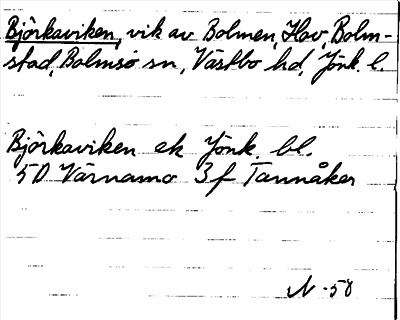 Björkaviken, vik av Bolmen, Hov, Bolm-
stad, Bolmsö sn, Västbo hd, Jönk. l.
Björkaviken ek Jönk. bl.
5D Värnamo 3f Tannåker
N -50